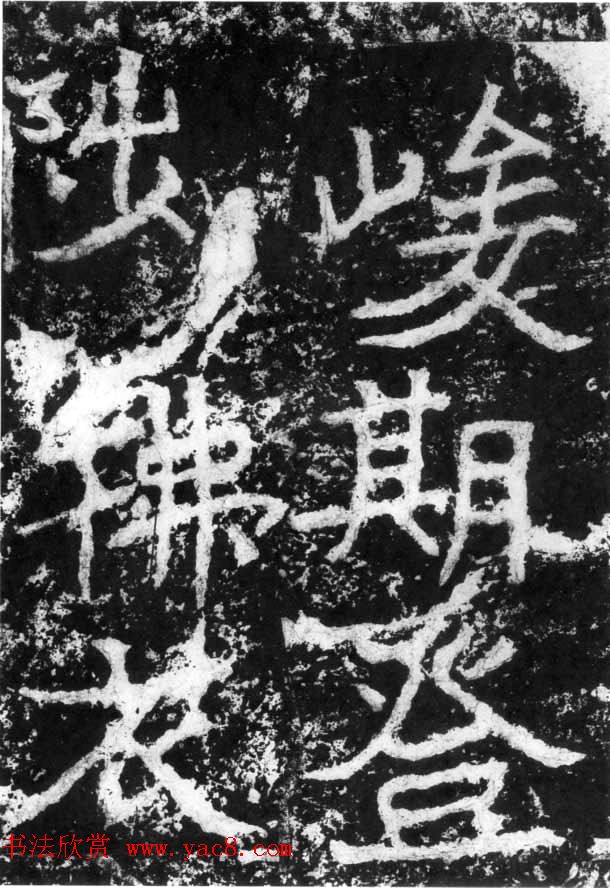 峻期登
陟拂衣
书法欣赏 www.yac8.com